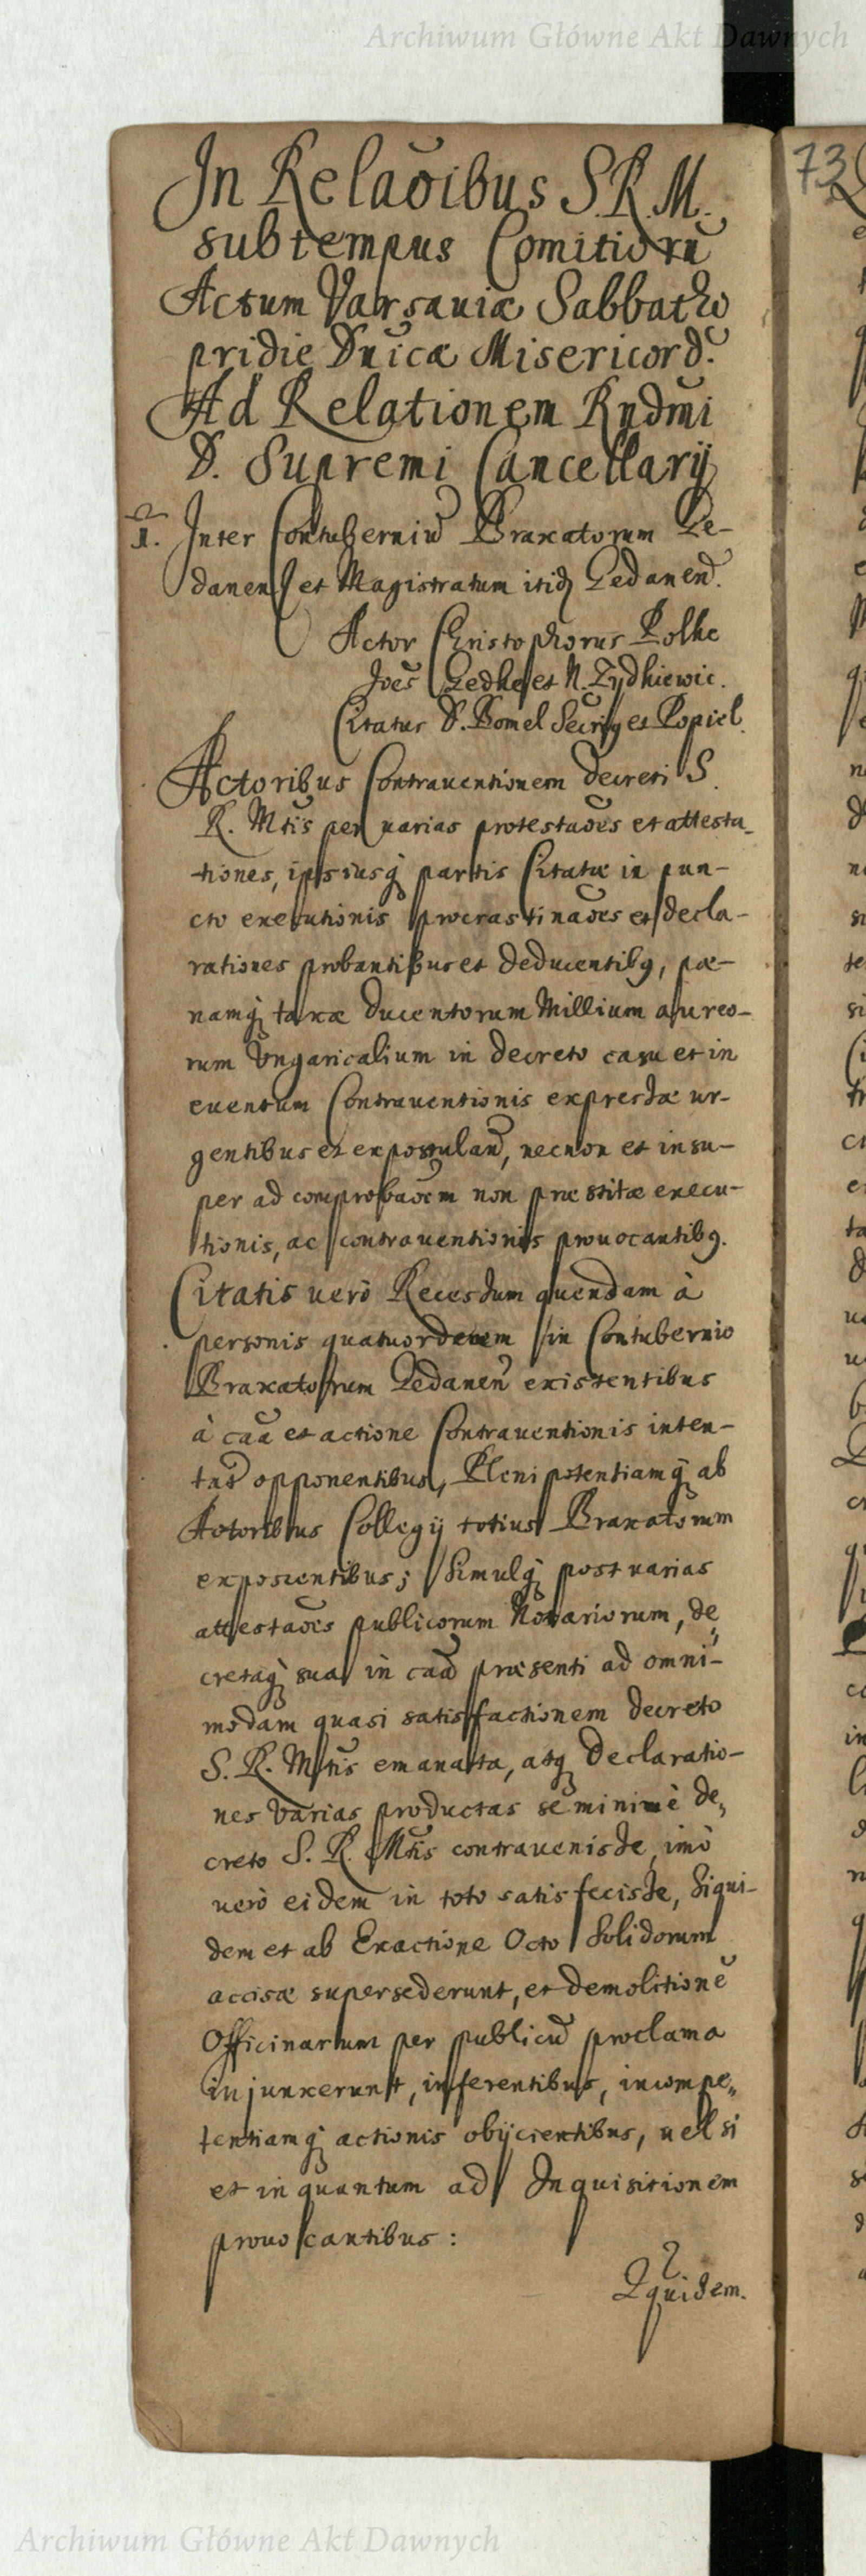 Archiwum Główne Akt Dawnych
73
In Relaõibus S. R. M.
sub tempus Comitiorũ
Actum Varsauiæ Sabbatho
pridie Dnĩcæ Misericord:
Ad Relationem Rndmĩ
D. Supremi Cancellarij
1. Inter Contuberniũ Braxatorum Ge-
danen̄ et Magistratum itid̨ Gedanen̄.
Actor Christophorus Rolke
Joẽs Gedke et N. Zydkiewic.
Citatus D. Bomel Secr̃ij et Popiel.
Actoribus Contrauentionem decreti S.
R. Mtĩs per uarias protestaões et attesta-
tiones, ipsiusq̨ partis Citatæ in pun-
cto executionis procrastinaões et decla-
rationes probantibus et deducentibꝯ, pœ-
namq̨ taxæ ducentorum Millium aureo-
rum Vngaricalium in decreto casu et in
euentum Contrauentionis expressæ ur-
gentibus et expostulan̄, necnon et insu-
per ad comprobaõem non præstitæ execu-
tionis, ac contrauentionis prouocantibꝯ.
Citatis uerò Recessum quendam à
personis quatuordecem in Contubernio
Braxatorum Gedanen̄ existentibus
à caã et actione Contrauentionis inten-
tat̃ opponentibus, Plenipotentiamq̨ ab
Actoribus Collegij totius Braxatorum
exposcentibus; Simulq̨ post uarias
attestaões publicorum Notariorum, de„
cretaq̨ sua in caã præsenti ad omni-
modam quasi satisfactionem decreto
S. R. Mtĩs emanata, atq̨ declaratio-
nes varias productas se minimè de„
creto S. R. Mtĩs contrauenisse, imò
uerò eidem in toto satisfecisse, Siqui-
dem et ab Exactione Octo Solidorum
accisæ supersederunt, et demolitionẽ
Officinarum per publicũ proclama
injunxerunt, inferentibus, incompe„
tentiamq̨ actionis obijcientibus, uel si
et in quantum ad Inquisitionem
prouocantibus:
Q̃quidem.
Archiwum Główne Akt Dawnych